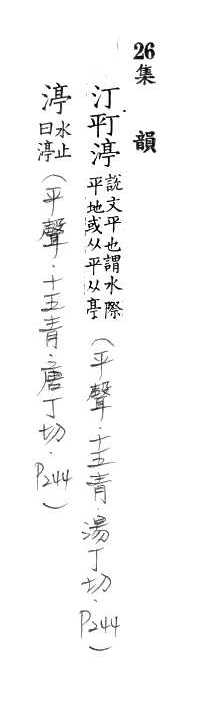 26集 韻
汀𤴓渟 說文平也謂水際平地或从平从亭（平聲．十五青．湯丁切．P244）
渟 水止曰渟（平聲．十五青．唐丁切．P244）